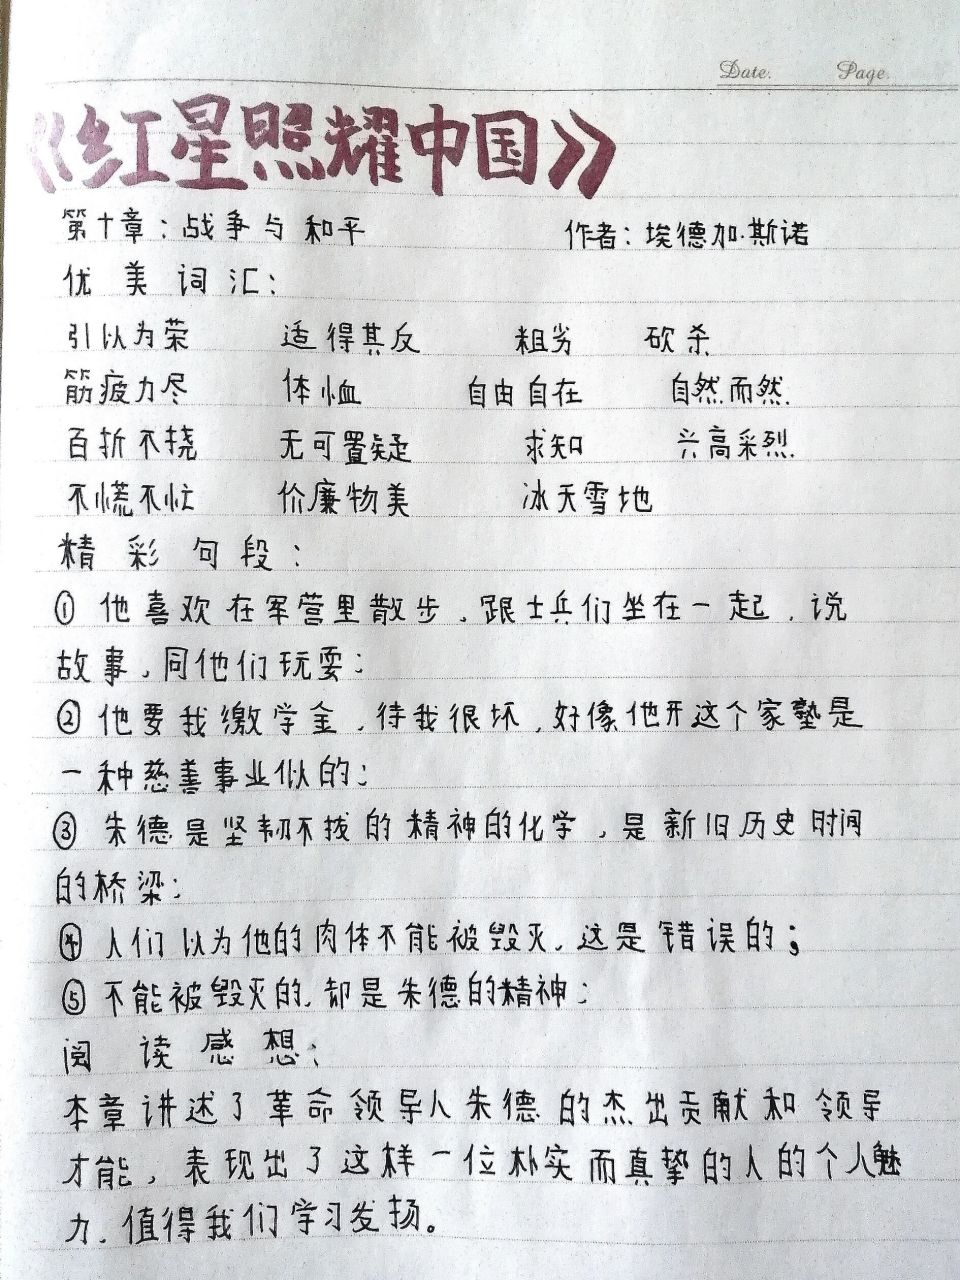 Date. Page.
《红星照耀中国》
第十章：战争与和平 作者：埃德加·斯诺
优美词汇：
引以为荣 适得其反 粗劣 砍杀
筋疲力尽 体恤 自由自在 自然而然
百折不挠 无可置疑 求知 兴高采烈
不慌不忙 价廉物美 冰天雪地
精彩句段：
①他喜欢在军营里散步，跟士兵们坐在一起，说
故事，同他们玩耍；
②他要我缴学金，待我很坏，好像他开这个家塾是
一种慈善事业似的；
③朱德是坚韧不拔的精神的化学，是新旧历史时间
的桥梁；
④人们以为他的肉体不能被毁灭，这是错误的；
⑤不能被毁灭的，却是朱德的精神；
阅读感想：
本章讲述了革命领导人朱德的杰出贡献和领导
才能，表现出了这样一位朴实而真挚的人的个人魅
力，值得我们学习发扬。